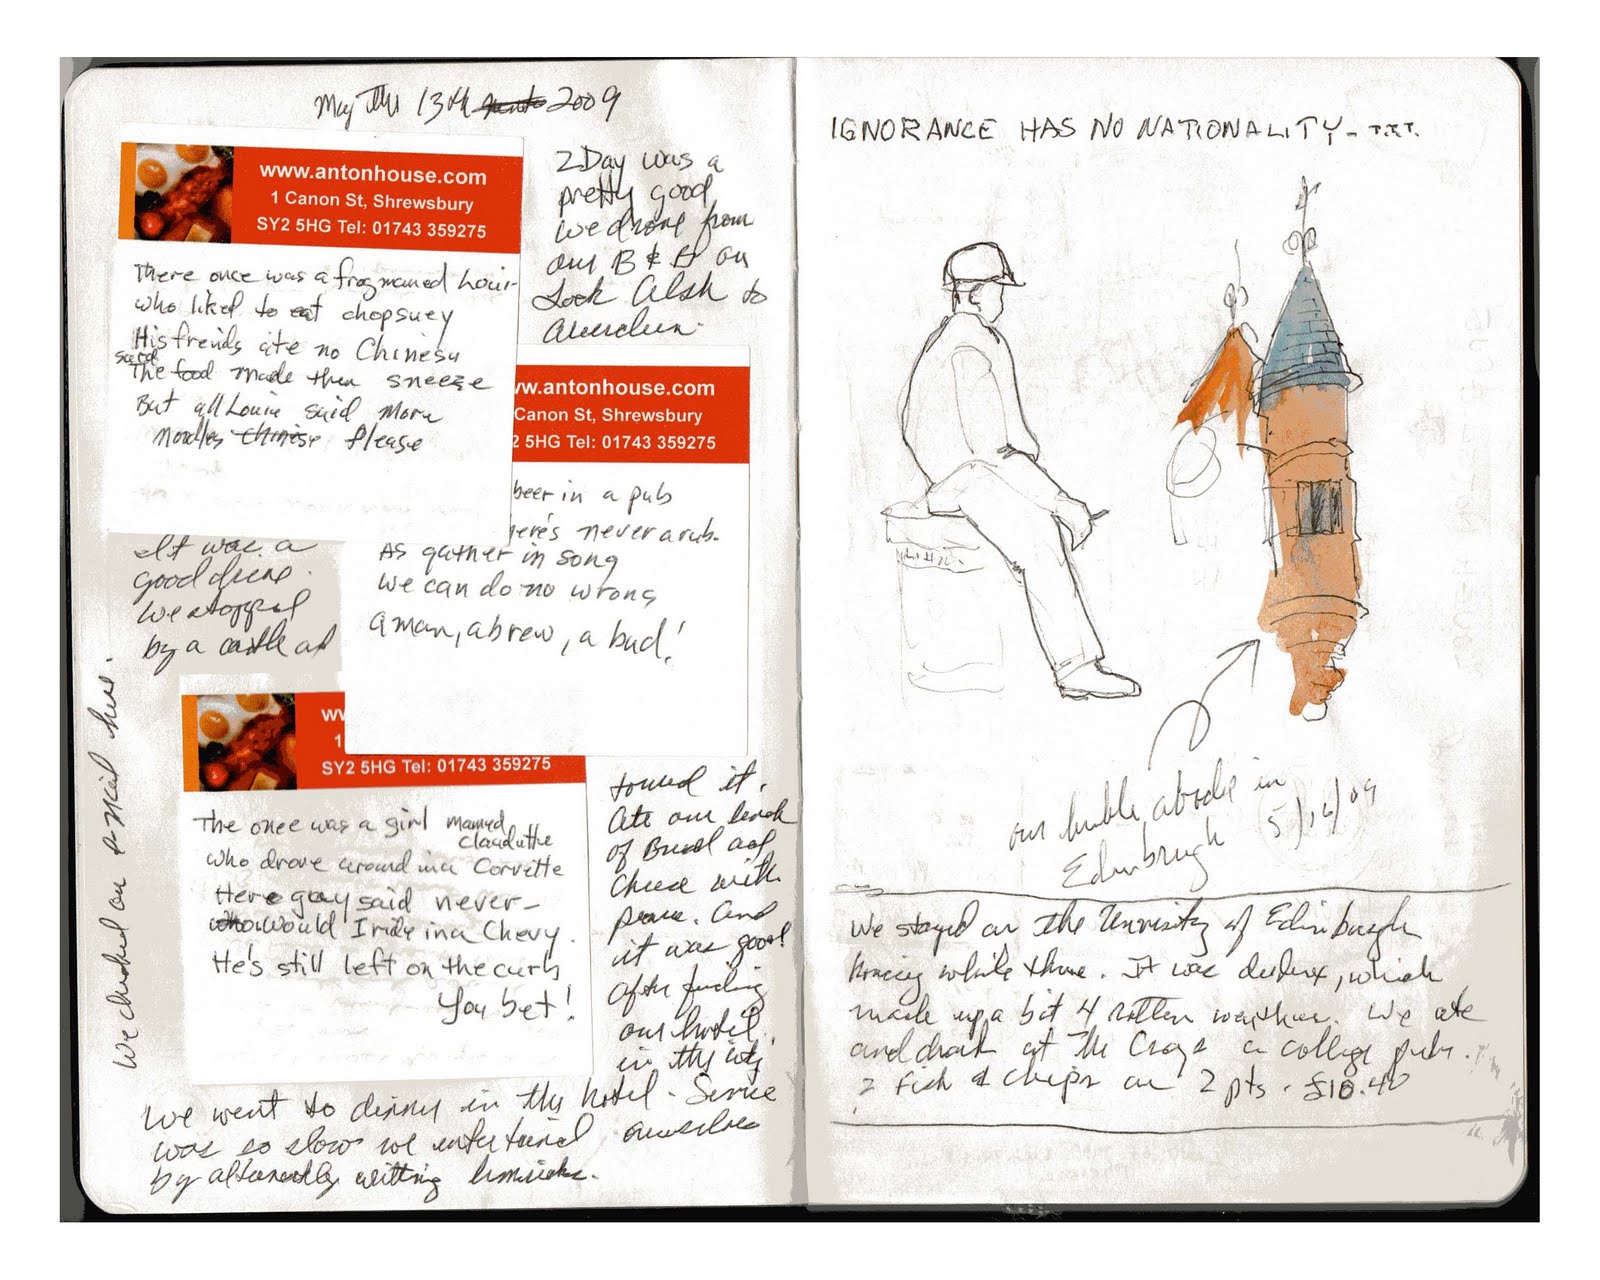 May the 13th 2009
www.antonhouse.com
1 Canon St, Shrewsbury
SY2 5HG Tel: 01743 359275
There once was a frog named Louie
who liked to eat chopsuey
His freinds ate no Chinese
said
The food made them sneeze
But all Louie said more
Noodles Chinese Please
2Day was a
pretty good
we drove from
our B & B on
Lock Alsh to
Aberdeen.
ww.antonhouse.com
Canon St, Shrewsbury
2 5HG Tel: 01743 359275
beer in a pub
here's never a rub.
As gather in song
we can do no wrong
a man, a brew, a bud!
It was a
good drive.
we stopped
by a castle and
ww
1
SY2 5HG Tel: 01743 359275
The once was a girl named
Claudette
who drove around in a Corvette
Here guy said never
who would I ride in a Chevy.
He's still left on the curb
You bet!
toured it.
Ate our lunch
of Bread and
Cheese with
and
it was good
After finding
our hotel
in the city
We went to dinner in the hotel. Service
was so slow we entertained ourselves
by alternately writting limricks.
We checked our e-mail here.
IGNORANCE HAS NO NATIONALITY - T.R.T.
our humble abode in
Edinbrugh 5/14/09
We stayed on the University of Edinburgh
while there. It was deluxe, which
made up a bit 4 rotten weather. We ate
and drank at the Crags a college pub.
2 Fish & chips an 2 pts. £10.40